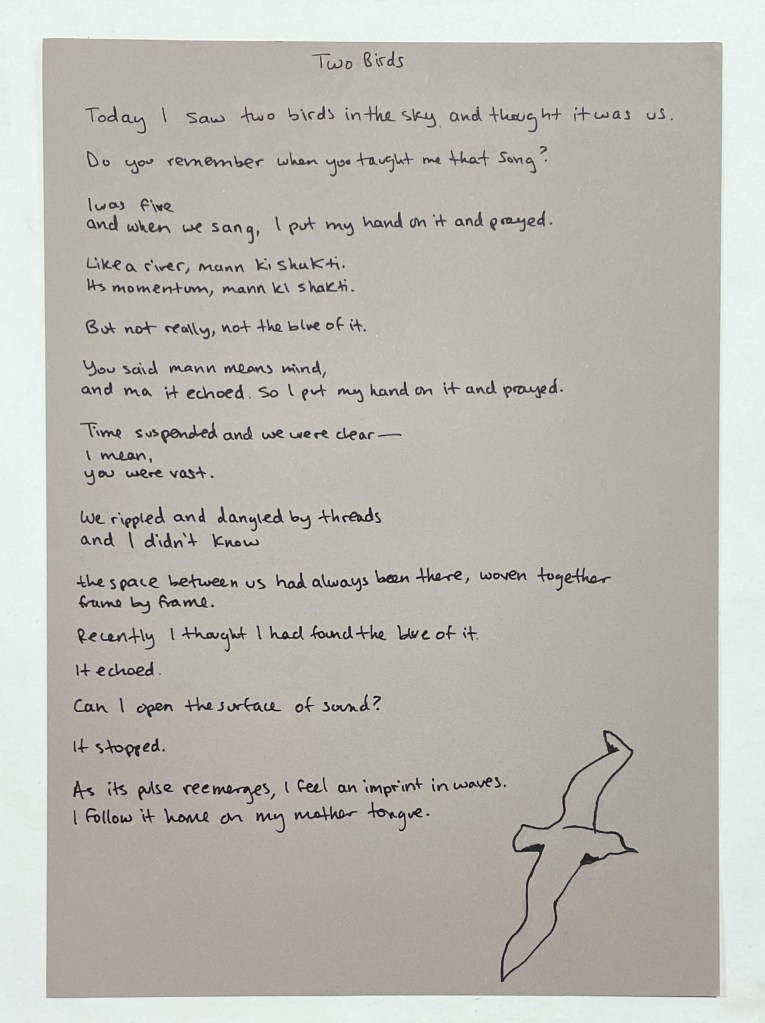 Two Birds
Today I saw two birds in the sky and thought it was us.
Do you remember when you taught me that song?
I was five
and when we sang, I put my hand on it and prayed.
Like a river, mann ki shakti.
Its momentum, mann ki shakti.
But not really, not the blue of it.
You said mann means mind,
and ma it echoed. So I put my hand on it and prayed.
Time suspended and we were clear—
I mean,
you were vast.
We rippled and dangled by threads
and I didn't know
the space between us had always been there, woven together
frame by frame.
Recently I thought I had found the blue of it.
It echoed.
Can I open the surface of sound?
It stopped.
As its pulse reemerges, I feel an imprint in waves.
I follow it home on my mother tongue.